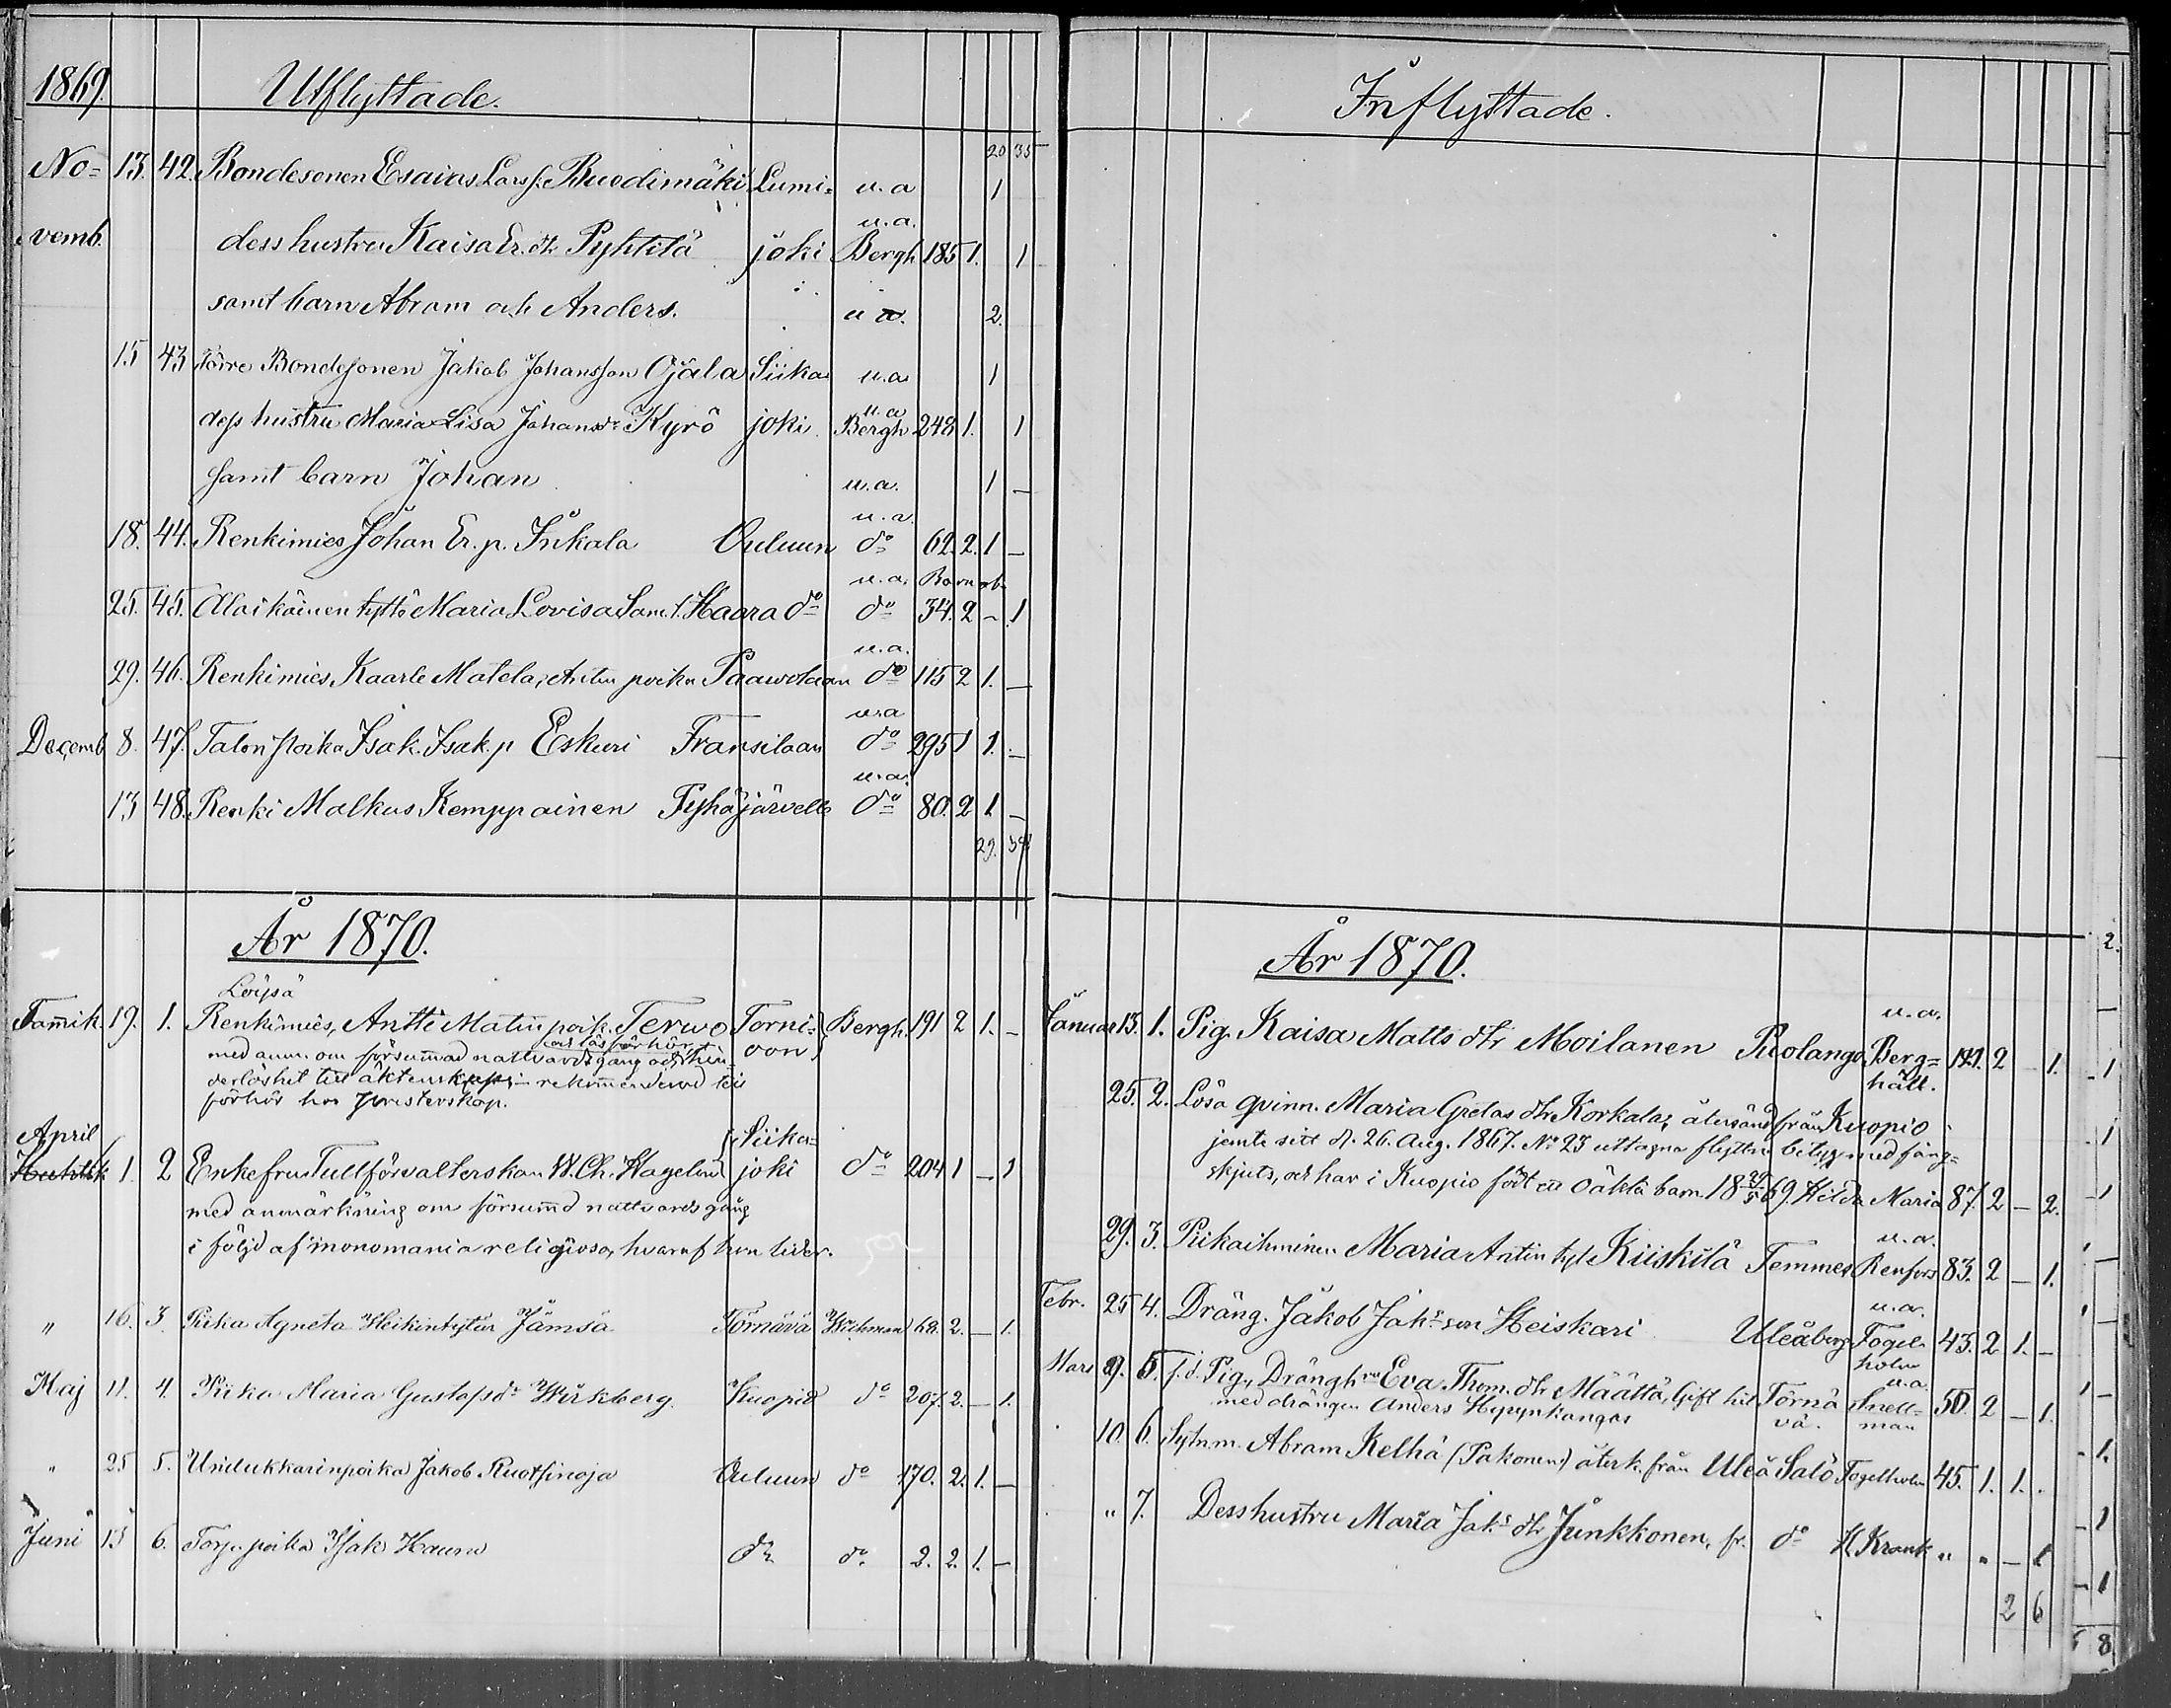 1869. Utflyttade.
20 35
No= 13. 42. Bondesonen Esaias Lars s. Ruodimäki Lumi= u. a 1
u. a.
vemb. dess hustru Kaisa Er. dtr Pyhtilä joki Bergh 185 1. 1
samt barn Abram och Anders. u a. 2.
15 43 Förre Bondesonen Jakob Johansson Ojala Siika u. a 1
u. a
dess hustru Maria Lisa Johansdr Kyrö joki. Bergh 248 1. 1
samt barn Johan u. a. 1 —
u. a.
18. 44. Renkimies Johan Er. p. Inkala Ouluun do 62. 2. 1 —
u. a. Barnab.
25. 45. Alaikäinen tyttö Maria Lovisa Sam. t. Haara do do 34. 2 - 1
u. a.
29. 46. Renkimies, Kaarle Matela, Antin poika Paawolaan do 115 2 1. —
u. a
Decemb. 8. 47. Talonpoika Isak Isak. p Eskuri Fransilaan do 295 1 1. —
u. a.
13 48. Renki Malkus Kemppainen Pyhäjärvelle do 80. 2 1 —
29. 39
År 1870.
Löysä
Tamik. 19. 1. Renkimies, Antti Matin poik. Terwo Torni= Bergh. 191 2 1. —
och läsförhör
med anm. om försummad nattvardsgång och hin- oon
derlöshet till äktenskap; rekommenderad till
förhör hos Presterskap.
April Siika=
Huhtik 1. 2 Enkefru Tullförvalterskan W. Ch. Hagelund joki do 204 1 — 1
med anmärkning om försumd nattvardsgång
i följd af monomania religiosa, hvaraf hon lider.
" 16. 3. Piika Agneta Heikintytär Jämsä Törnävä Wichman 68. 2. — 1.
Maj 11. 4. Piika Maria Gustafsdr Wirkberg. Kuopio do 207. 2. — 1.
" 25 5. Uudukkarinpoika Jakob Ruotsinoja Ouluun do 170. 2. 1. —
Juni 13 6. Torp. poika Isak Hauru do do 2. 2. 1. —
Inflyttade.
År 1870.
u. a.
Januar 13. 1. Pig. Kaisa Matts dtr Moilanen Puolango Berg= 141. 2 — 1.
häll.
25. 2. Lösa qvinn. Maria Gretas dtr Korkala, återsänd från Kuopio
jemte sitt d. 26. Aug. 1867. No 23 uttagna flyttn. betyg med fång=
skjuts, och har i Kuopio födt ett oäkta barn 18 29/5 69. Hilda Maria 87. 2 — 2.
u. a.
29. 3. Piikaihminen Maria Antin tyt Kiiskilä Temmes Renfors 83. 2 — 1.
u. a.
Febr. 25 4. Dräng. Jakob Jaks son Heiskari Uleåborg Fogel- 43. 2 1. —
holm
u. a.
Mars 9. 5. f. d. Pig., Drängh:n Eva Thom. dtr Määttä, Gift hit Törnä Snell= 50. 2 — 1.
med drängen Anders Hyrynkangas vä. man
10. 6. Sytn.m. Abram Kelhä (Pakonen) återk. från Uleå Salo Fogelholm 45. 1. 1. .
" 7. Dess hustru Maria Jaks dtr Junkkonen, fr. do H. Krank " " — 1
2 6